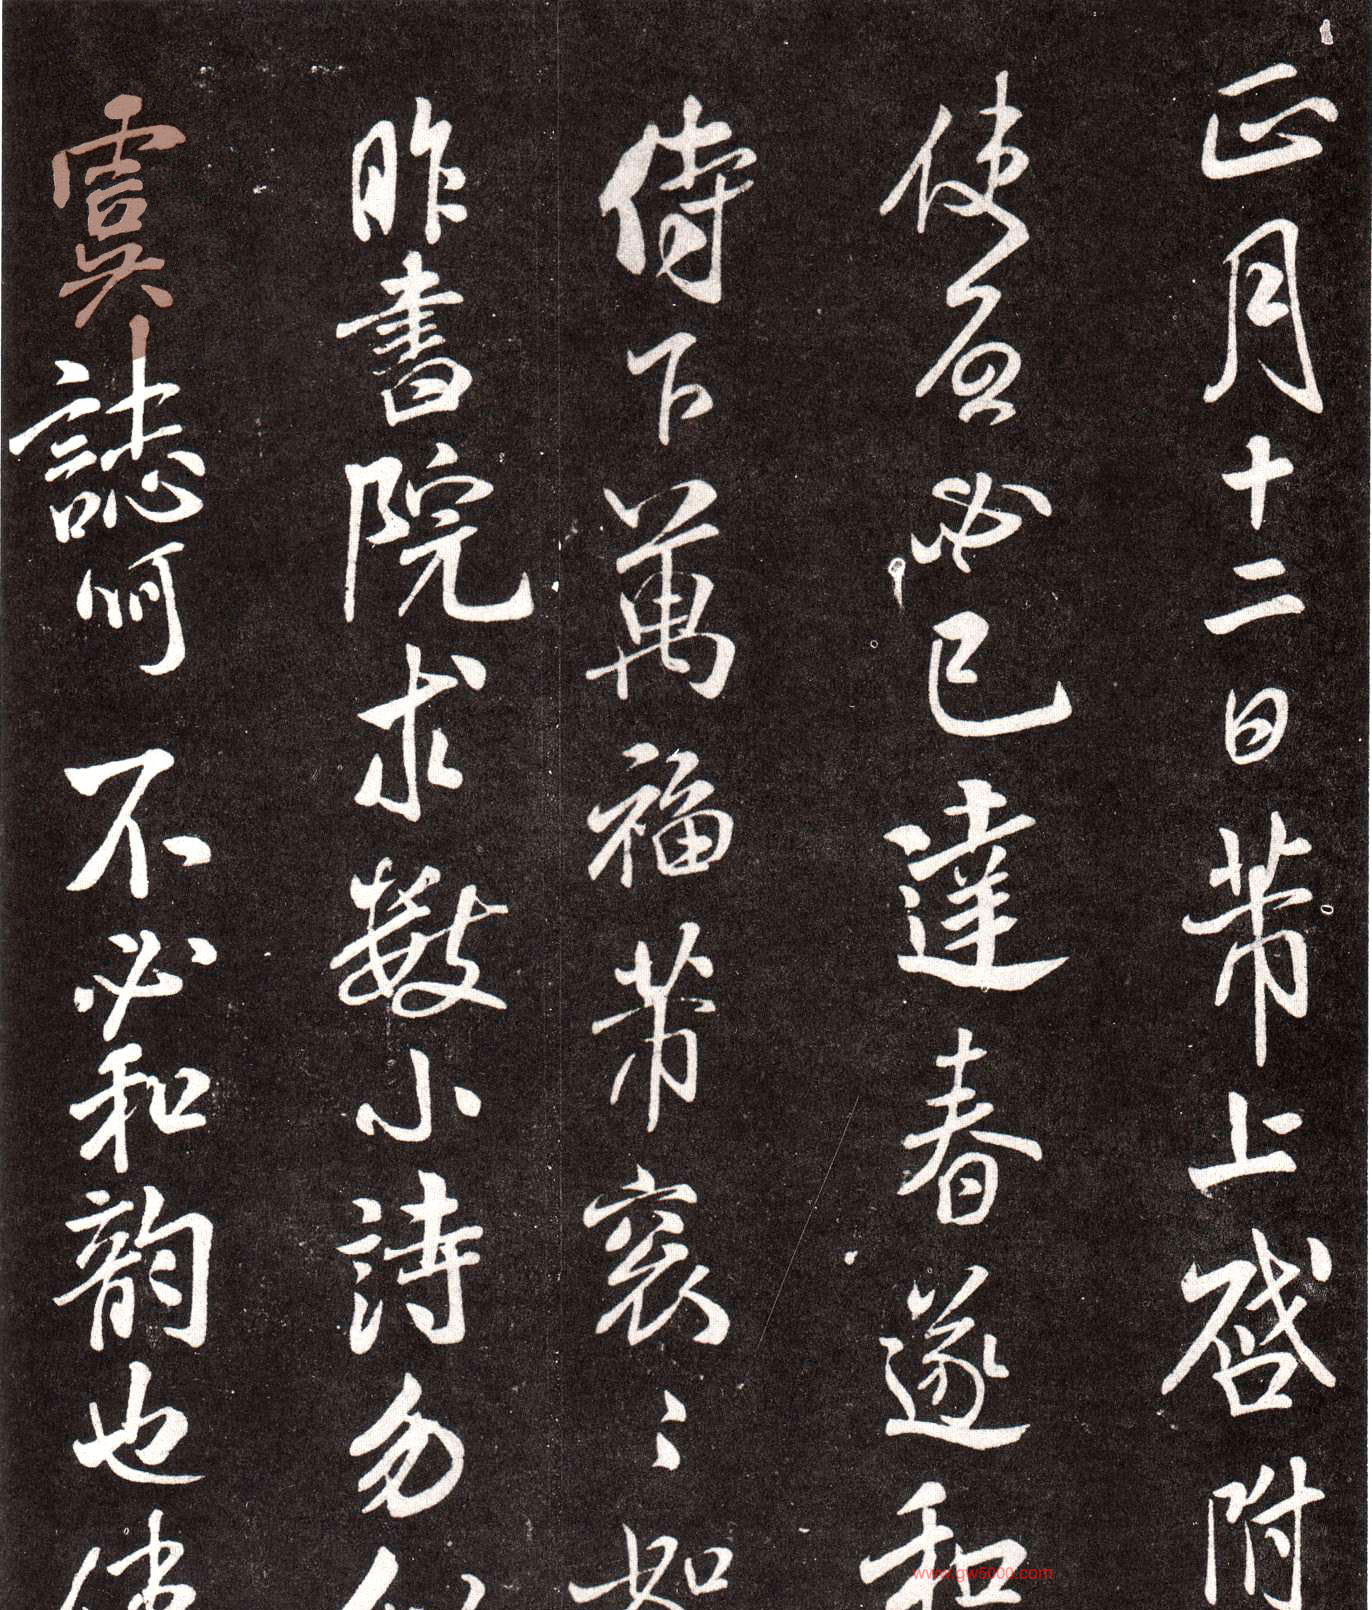 正月十二日芾上啓附
使居必已達春遂和
侍下萬福芾衮〻如
昨書院求數小詩勿
虞誌呵不必和韵也
www.gw5000.com